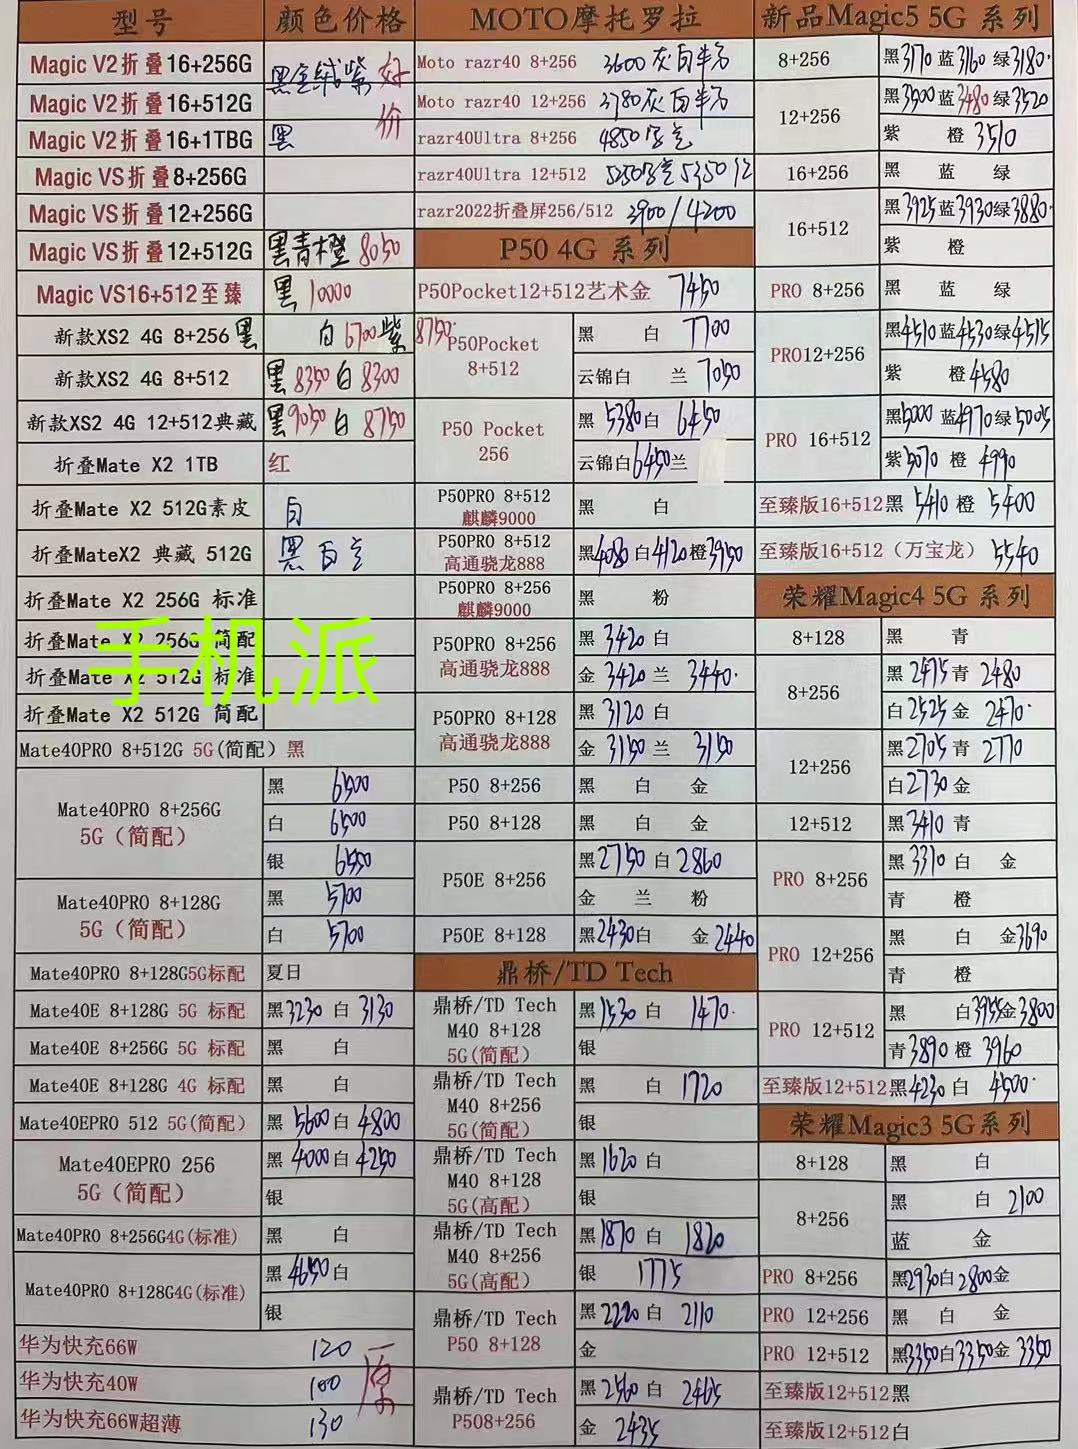 型号 颜色价格
Magic V2折叠16+256G 黑金绒紫 好
Magic V2折叠16+512G 价
Magic V2折叠16+1TBG 黑
Magic VS折叠8+256G
Magic VS折叠12+256G
Magic VS折叠12+512G 黑青橙 8050
Magic VS16+512至臻 黑 10000
新款XS2 4G 8+256 黑 白6700紫8750
新款XS2 4G 8+512 黑8350白8300
新款XS2 4G 12+512典藏 黑9050白8750
折叠Mate X2 1TB 红
折叠Mate X2 512G素皮 白
折叠MateX2 典藏 512G 黑白
折叠Mate X2 256G 标准
折叠Mate X2 256G 简配
折叠Mate X2 512G 标准
折叠Mate X2 512G 简配
手机派
Mate40PRO 8+512G 5G(简配) 黑
Mate40PRO 8+256G
5G(简配)
黑 6500
白 6500
银 6550
Mate40PRO 8+128G
5G(简配)
黑 5700
白 5700
Mate40PRO 8+128G5G标配 夏日
Mate40E 8+128G 5G 标配 黑3230白3130
Mate40E 8+256G 5G 标配 黑 白
Mate40E 8+128G 4G 标配 黑 白
Mate40EPRO 512 5G(简配) 黑5600白4800
Mate40EPRO 256
5G(简配)
黑4000白4250
银
Mate40PRO 8+256G4G(标准) 黑 白
Mate40PRO 8+128G4G(标准)
黑4650白
银
华为快充66W 120 一
华为快充40W 100 原
华为快充66W超薄 130
MOTO摩托罗拉
Moto razr40 8+256 3600灰白
Moto razr40 12+256 3780灰白
razr40Ultra 8+256 4850
razr40Ultra 12+512 5250 5350
razr2022折叠屏256/512 3900/4200
P50 4G 系列
P50Pocket12+512艺术金 7450
P50Pocket
8+512
黑 白 7700
云锦白 兰 7050
P50 Pocket
256
黑 5380白 6450
云锦白6450兰
P50PRO 8+512
麒麟9000
黑 白
P50PRO 8+512
高通骁龙888
黑4080白4120橙3950
P50PRO 8+256
麒麟9000
黑 粉
P50PRO 8+256
高通骁龙888
黑 3420 白
金 3420 兰 3440
P50PRO 8+128
高通骁龙888
黑 3120 白
金 3150 兰 3150
P50 8+256 黑 白 金
P50 8+128 黑 白 金
P50E 8+256
黑2750白2860
金 兰 粉
P50E 8+128 黑2430白 金2440
鼎桥/TD Tech
鼎桥/TD Tech
M40 8+128
5G(简配)
黑1530白 1470
银
鼎桥/TD Tech
M40 8+256
5G(简配)
黑 白 1720
银
鼎桥/TD Tech
M40 8+128
5G(高配)
黑1620白
银
鼎桥/TD Tech
M40 8+256
5G(高配)
黑1870白 1820
银 1775
鼎桥/TD Tech
P50 8+128
黑2220白 2110
金
鼎桥/TD Tech
P508+256
黑2560白 2465
金 2435
新品Magic5 5G 系列
8+256 黑3170蓝3160绿3180
12+256
黑3500蓝3480绿3520
紫 橙3510
16+256 黑 蓝 绿
16+512
黑3925蓝3930绿3880
紫 橙
PRO 8+256 黑 蓝 绿
PRO12+256
黑4510蓝4530绿4515
紫 橙4580
PRO 16+512
黑5000蓝4970绿5005
紫5070橙 4990
至臻版16+512黑 5410 橙 5400
至臻版16+512(万宝龙) 5540
荣耀Magic4 5G 系列
8+128 黑 青
8+256
黑2475青2480
白2525金2470
12+256
黑2705青2770
白2730金
12+512 黑3410青
PRO 8+256
黑3310白 金
青 橙
PRO 12+256
黑 白 金3690
青 橙
PRO 12+512
黑 白3955金3800
青3890橙 3960
至臻版12+512黑4230白 4500
荣耀Magic3 5G系列
8+128 黑 白
8+256
黑 白2100
蓝 金
PRO 8+256 黑2930白2800金
PRO 12+256 黑 白 金
PRO 12+512 黑3350白3350金3350
至臻版12+512黑
至臻版12+512白